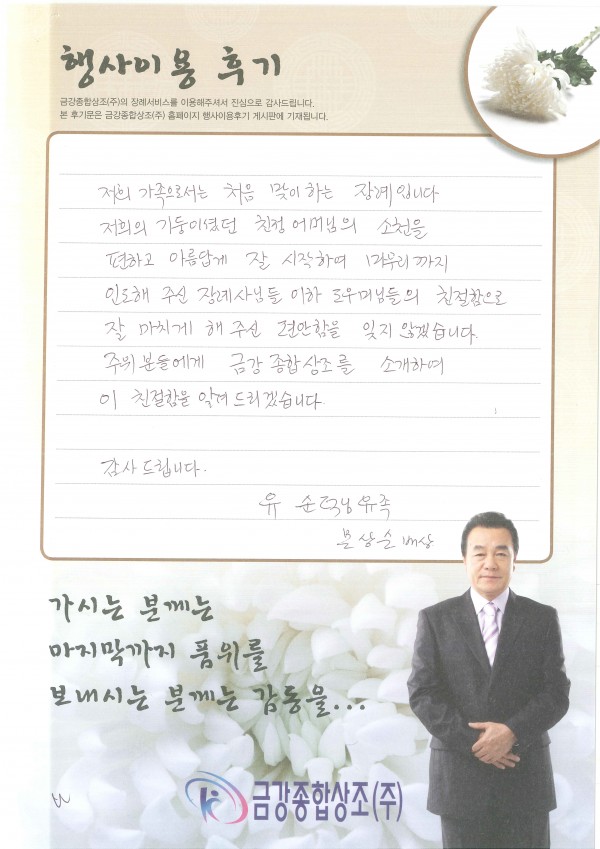 행사이용 후기
금강종합상조(주)의 장례서비스를 이용해주셔서 진심으로 감사드립니다.
본 후기문은 금강종합상조(주) 홈페이지 행사이용후기 게시판에 기재됩니다.
저희 가족으로서는 처음 맞이하는 장례입니다
저희의 기둥이셨던 친정어머님의 소천을
편하고 아름답게 잘 시작하여 마무리까지
인도해 주신 장례사님들 이하 도우미님들의 친절함으로
잘 마치게 해 주신 편안함을 잊지 않겠습니다.
주위 분들에게 금강종합상조를 소개하여
이 친절함을 알려 드리겠습니다.
감사드립니다.
유 순 유족
문상순 배상
가시는 분께는
마지막까지 품위를
보내시는 분께는 감동을...
금강종합상조(주)